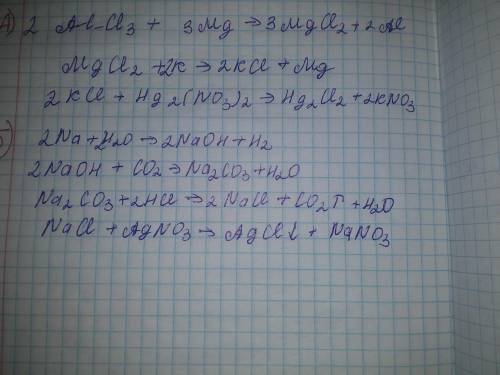 А) 2 AlCl₃ + 3Mg → 3MgCl₂ + 2Al
MgCl₂ + 2K → 2KCl + Mg
2KCl + Hg₂(NO₃)₂ → Hg₂Cl₂ + 2KNO₃
Б) 2Na + 2H₂O → 2NaOH + H₂
2NaOH + CO₂ → Na₂CO₃ + H₂O
Na₂CO₃ + 2HCl → 2NaCl + CO₂↑ + H₂O
NaCl + AgNO₃ → AgCl↓ + NaNO₃